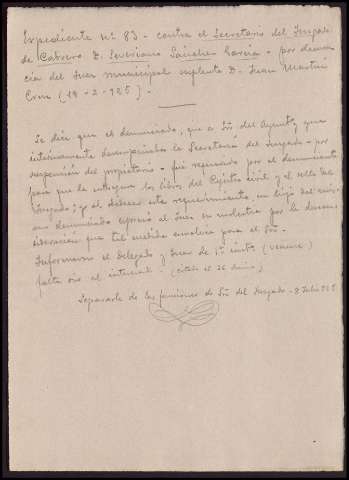 Expediente nº 83 - contra el Secretario del Juzgado
de Cabrero D. Severiano Sánchez García - por denun-
cia del Juez municipal suplente D. Juan Martín
(19-2-925).
Se dice que el denunciado, que es Sio del Aynto, y que
interinamente desempeñaba la Secretaría del Juzgado - por
suspensión del propietario - fué requerido por el denunciante
para que le entregara los libros del Registro civil y el sello del
Juzgado; y al obedecer este requerimiento, un hijo del mis-
mo denunciado expresó al Juez su molestia por la descon-
sideración que tal medida envolvía para el Sio.
Informaron el Delegado y Juez de 1ª insta
falta oir al interesado - (
Separarle de las funciones de Sio del Juzgado - 8 Julio 925